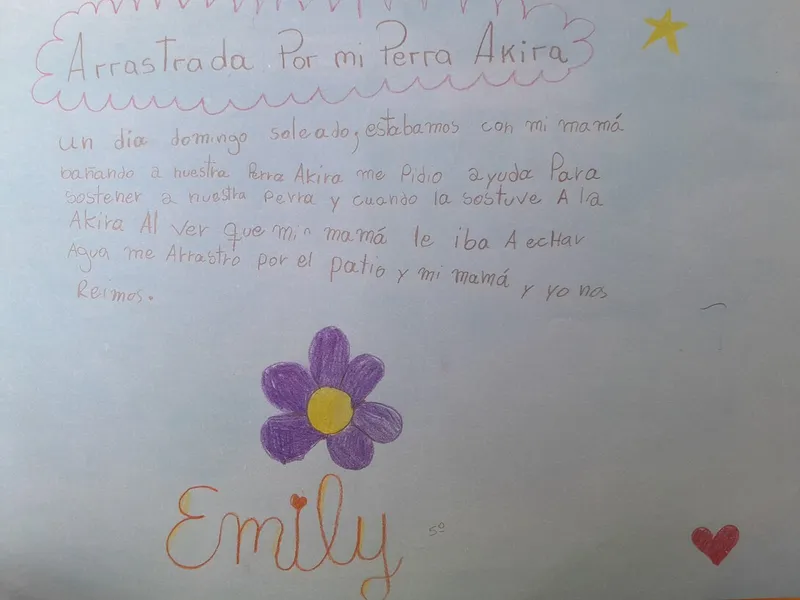 Arrastrada Por mi Perra Akira
un día domingo soleado; estabamos con mi mamá
bañando a nuestra Perra Akira me Pidio ayuda Para
sostener a nuestra perra y cuando la sostuve A la
Akira Al ver que mi mamá le iba A echar
Agua me Arrastró por el patio y mi mamá y yo nos
Reimos.
Emily 5º